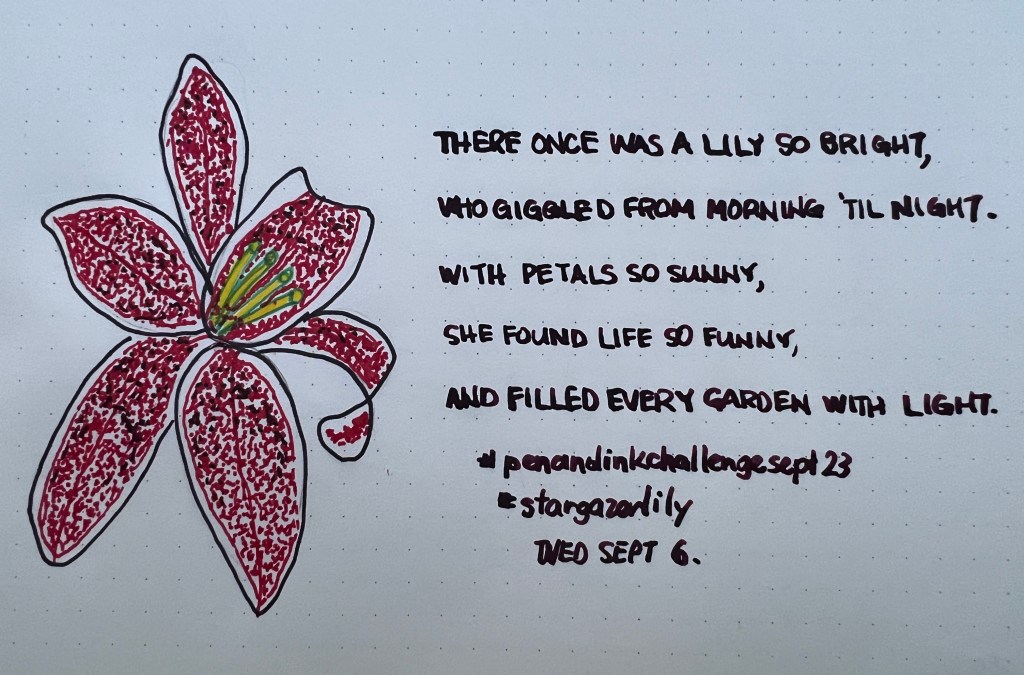 THERE ONCE WAS A LILY SO BRIGHT,
WHO GIGGLED FROM MORNING 'TIL NIGHT.
WITH PETALS SO SUNNY,
SHE FOUND LIFE SO FUNNY,
AND FILLED EVERY GARDEN WITH LIGHT.
#penandinkchallengesept23
#stargazerlily
WED SEPT 6.